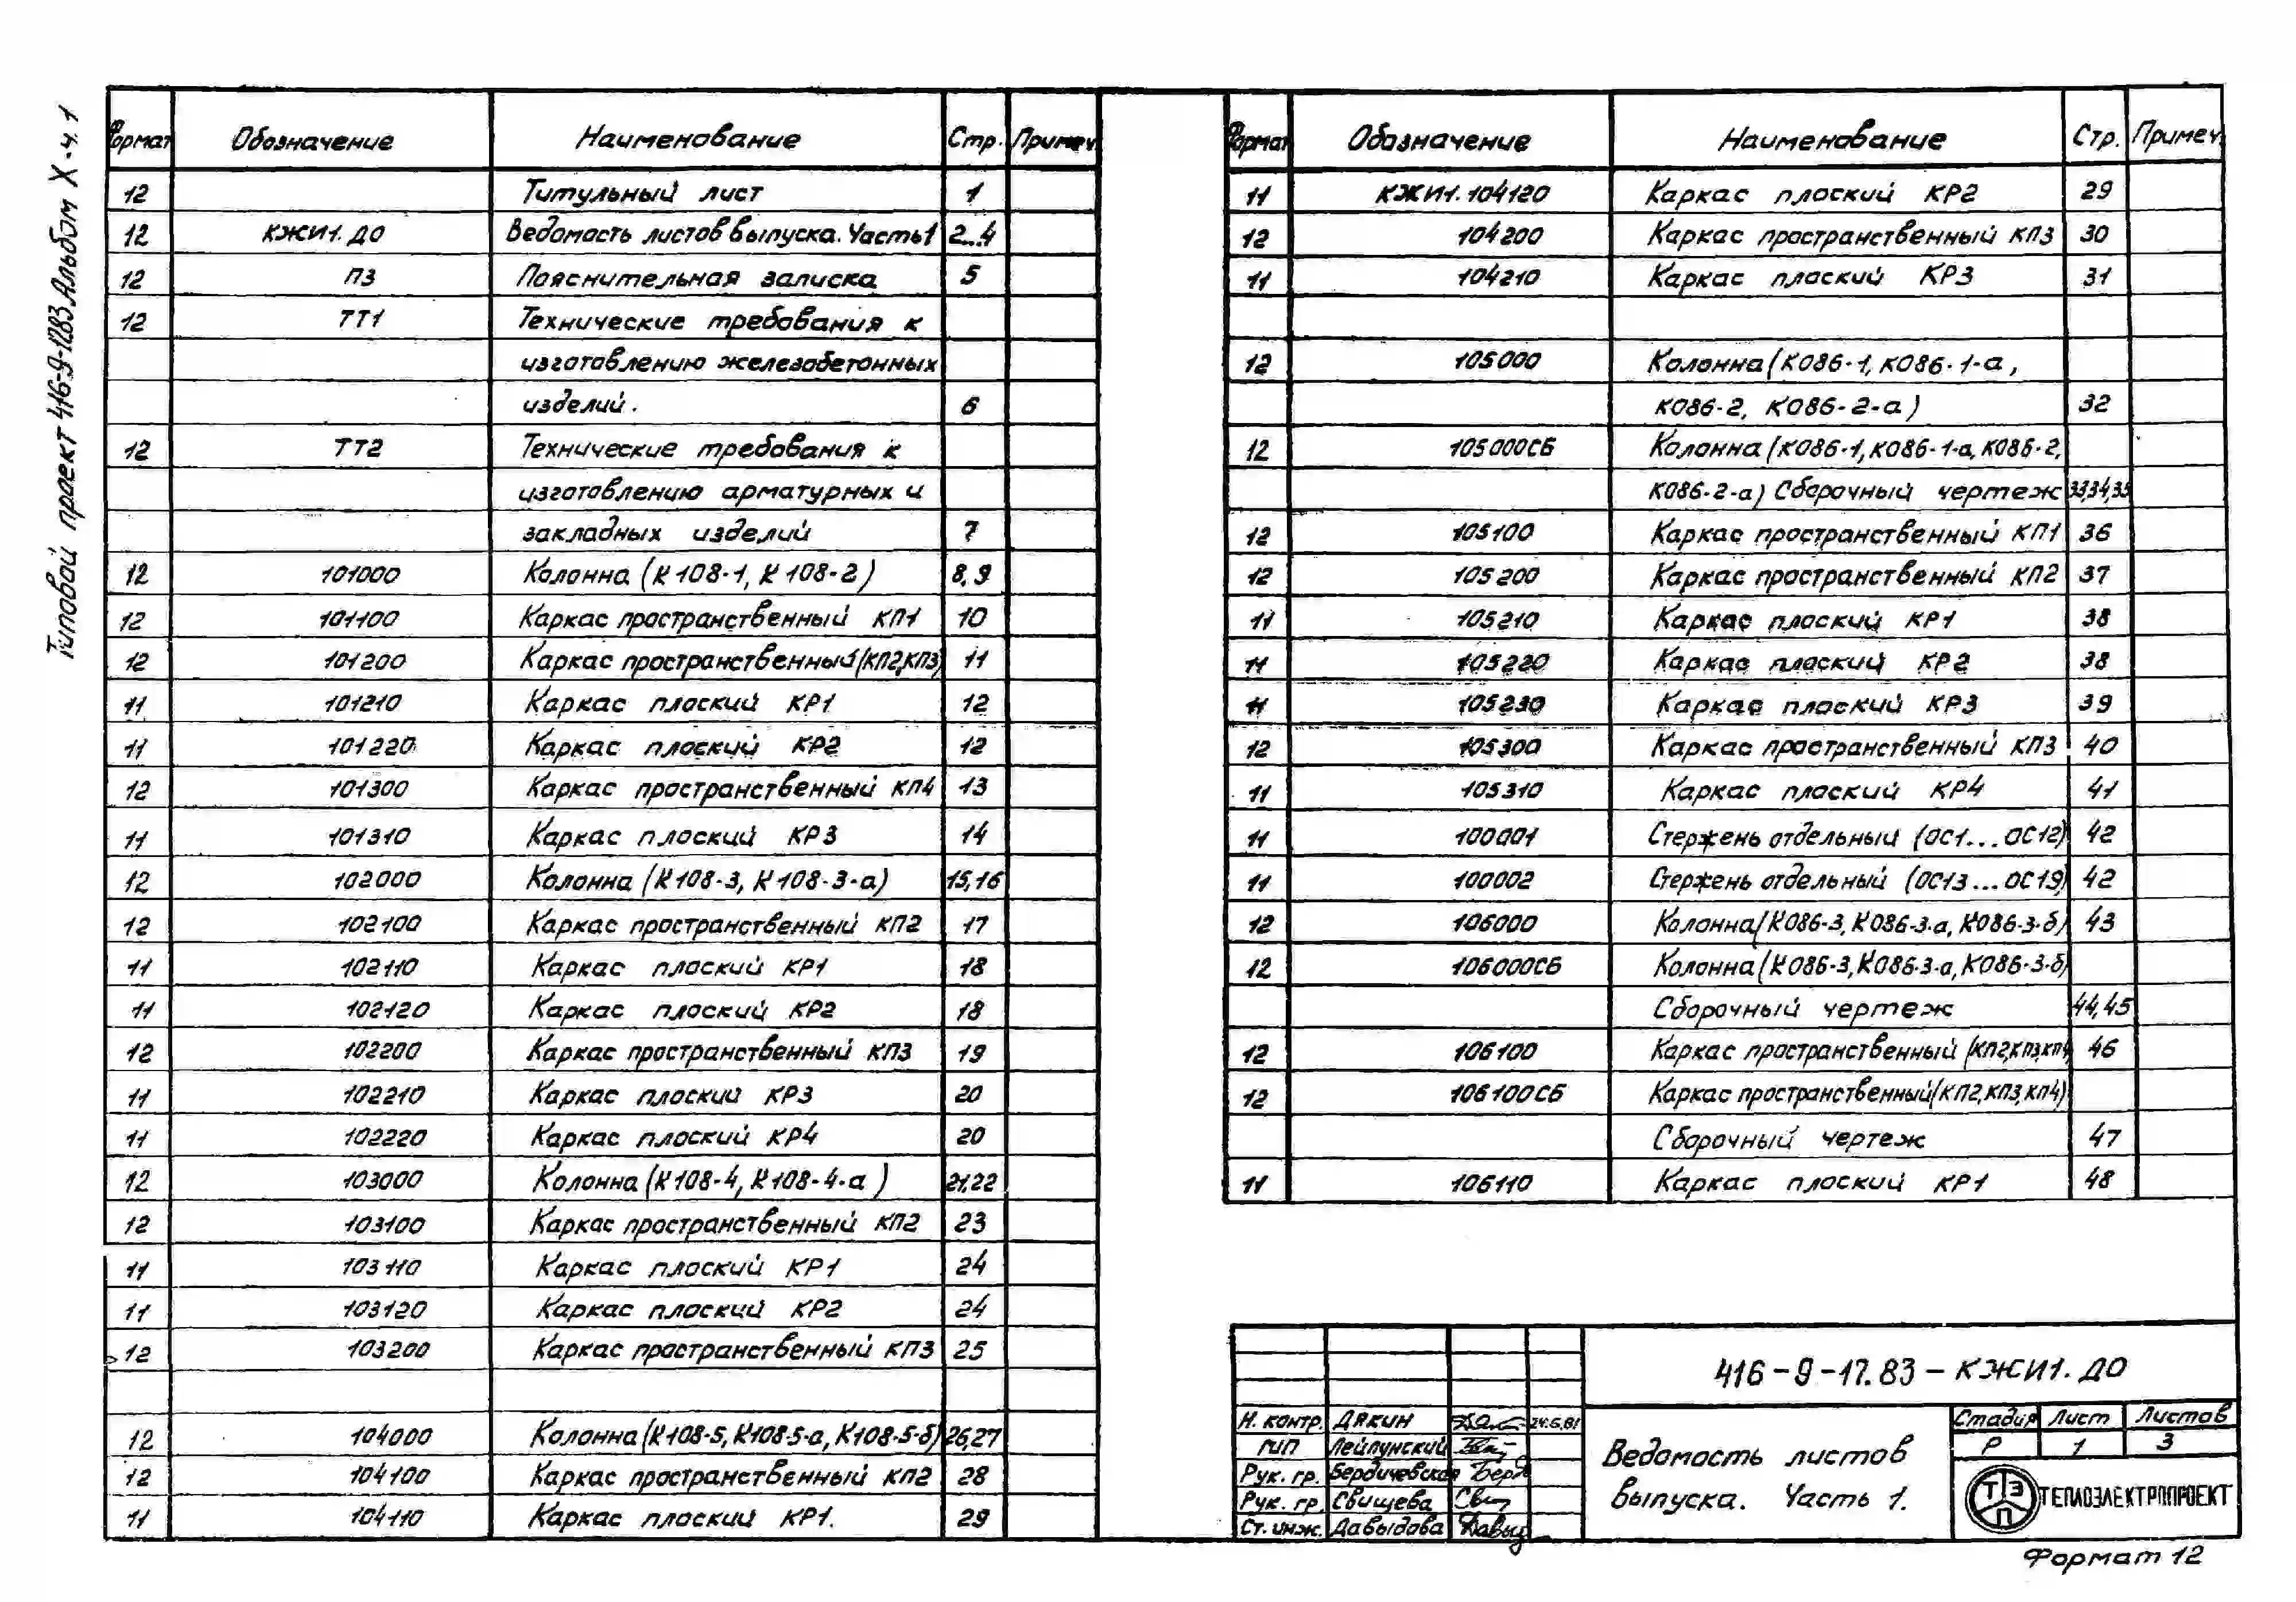 Типовой проект 416-9-1283 Альбом X·ч.1
Формат Обозначение Наименование Стр. Примеч.
12 Титульный лист 1
12 КЖИ1.ДО Ведомость листов выпуска. Часть 1 2...4
12 ПЗ Пояснительная записка 5
12 ТТ1 Технические требования к
изготовлению железобетонных
изделий. 6
12 ТТ2 Технические требования к
изготовлению арматурных и
закладных изделий 7
12 101000 Колонна (К108-1, К108-2) 8,9
12 101100 Каркас пространственный КП1 10
12 101200 Каркас пространственный (КП2,КП3) 11
11 101210 Каркас плоский КР1 12
11 101220 Каркас плоский КР2 12
12 101300 Каркас пространственный КП4 13
11 101310 Каркас плоский КР3 14
12 102000 Колонна (К108-3, К108-3-а) 15,16
12 102100 Каркас пространственный КП2 17
11 102110 Каркас плоский КР1 18
11 102120 Каркас плоский КР2 18
12 102200 Каркас пространственный КП3 19
11 102210 Каркас плоский КР3 20
11 102220 Каркас плоский КР4 20
12 103000 Колонна (К108-4, К108-4-а) 21,22
12 103100 Каркас пространственный КП2 23
11 103110 Каркас плоский КР1 24
11 103120 Каркас плоский КР2 24
12 103200 Каркас пространственный КП3 25
12 104000 Колонна (К108-5, К108-5-а, К108-5-б) 26,27
12 104100 Каркас пространственный КП2 28
11 104110 Каркас плоский КР1. 29
Формат Обозначение Наименование Стр. Примеч.
11 КЖИ1.104120 Каркас плоский КР2 29
12 104200 Каркас пространственный КП3 30
11 104210 Каркас плоский КР3 31
12 105000 Колонна (К086-1, К086-1-а,
К086-2, К086-2-а) 32
12 105000СБ Колонна (К086-1, К086-1-а, К086-2,
К086-2-а) Сборочный чертеж 33,34,35
12 105100 Каркас пространственный КП1 36
12 105200 Каркас пространственный КП2 37
11 105210 Каркас плоский КР1 38
11 105220 Каркас плоский КР2 38
11 105230 Каркас плоский КР3 39
12 105300 Каркас пространственный КП3 40
11 105310 Каркас плоский КР4 41
11 100001 Стержень отдельный (ОС1...ОС12) 42
11 100002 Стержень отдельный (ОС13...ОС19) 42
12 106000 Колонна (К086-3, К086-3-а, К086-3-б) 43
12 106000СБ Колонна (К086-3, К086-3-а, К086-3-б)
Сборочный чертеж 44,45
12 106100 Каркас пространственный (КП2,КП3,КП4) 46
12 106100СБ Каркас пространственный (КП2,КП3,КП4)
Сборочный чертеж 47
11 106110 Каркас плоский КР1 48
416-9-17.83-КЖИ1.ДО
Н. контр. Дякин 24.6.81
ГИП Лейпунский
Рук. гр. Бердичевская
Рук. гр. Свищева
Ст. инж. Давыдова
Ведомость листов
выпуска. Часть 1.
Стадия Лист Листов
Р 1 3
ТЭП ТЕПЛОЭЛЕКТРОПРОЕКТ
Формат 12